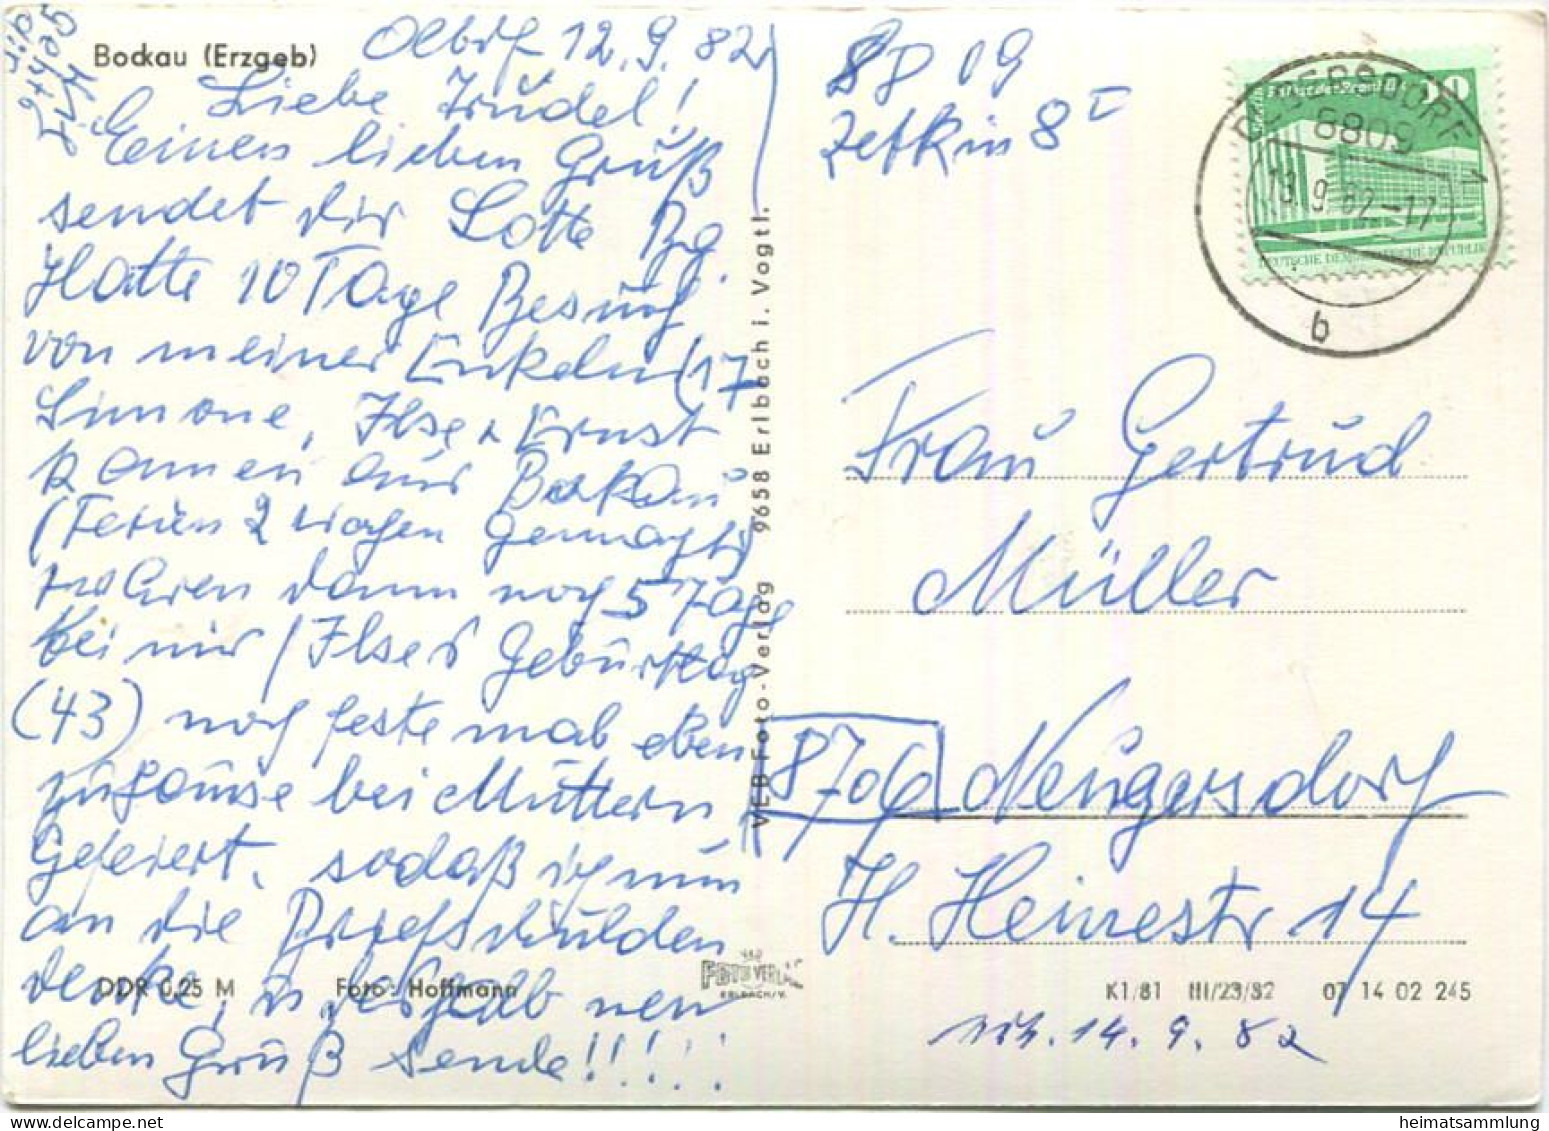 Bockau (Erzgeb)
Olbdf 12.9.82
Liebe Trudel!
Einen lieben Gruß
sendet dir Lotte Bg.
Hatte 10 Tage Besuch
von meinen Enkeln (17
Simone, Ilse + Ernst
kamen aus Bockau
(Ferien 2 Wochen gemacht)
waren dann noch 5 Tage
bei mir / Ilses Geburtstag
(43) noch feste mal eben
zuhause bei Muttern
gefeiert, sodaß ich nun
an die Briefschulden
denke, u. deshalb nen
lieben Gruß sende!!!!!
DDR 0,25 M Foto: Hoffmann
VEB Foto-Verlag 9658 Erlbach i. Vogtl.
FOTO VERLAG
ERLBACH/V.
09
Zetkin 8 I
OLBERSDORF 1
8809
13.9.82-17
b
DEUTSCHE DEMOKRATISCHE REPUBLIK
Frau Gertrud
Müller
8706 Neugersdorf
H. Heinestr 14
K1/81 III/23/82 07 14 02 245
14.9.82
heimatsammlung.de